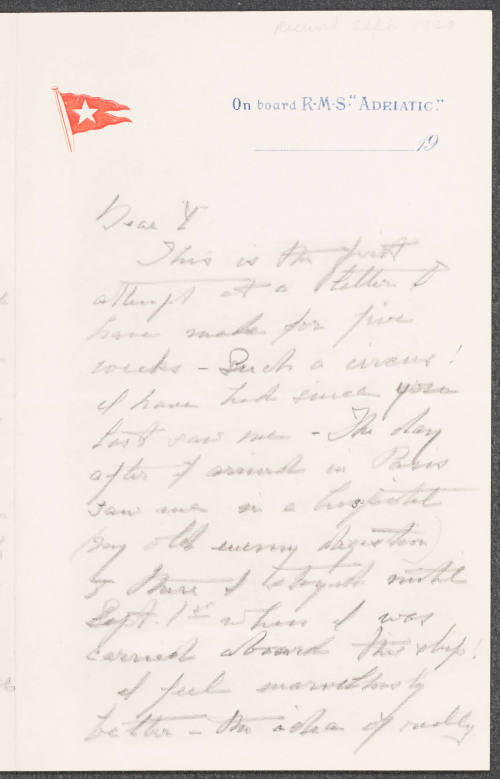 Received Sept. 1920
On board R·M·S·"ADRIATIC."
19
Dear Y
This is the first
attempt at a letter I
have made for five
weeks - Such a circus!
I have had since you
last saw me - The day
after I arrived in Paris
saw me in a hospital
my old enemy digestion)
& there I stayed until
Sept. 1st when I was
carried aboard this ship!
I feel marvelously
better - the idea of really